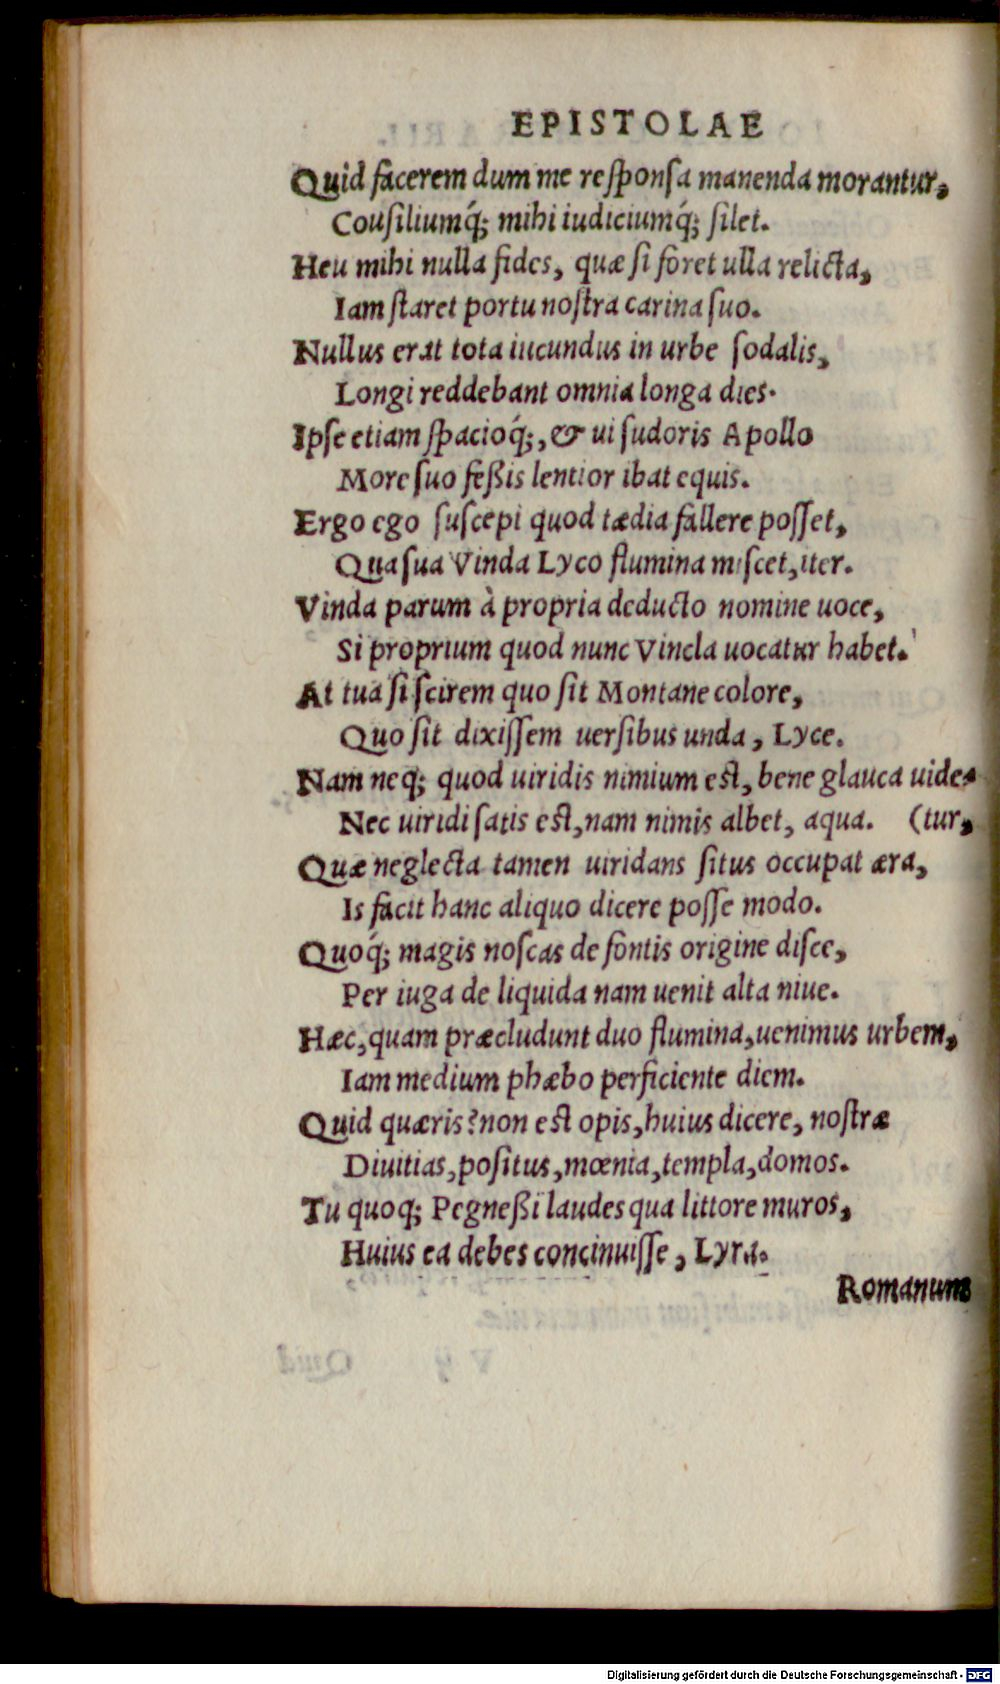 EPISTOLAE
Quid facerem dum me responsa manenda morantur,
Cousiliumq́; mihi iudiciumq́; silet.
Heu mihi nulla fides, quæ si foret ulla relicta,
Iam staret portu nostra carina suo.
Nullus erat tota iucundus in urbe sodalis,
Longi reddebant omnia longa dies.
Ipse etiam spacioq́;, & ui sudoris Apollo
More suo feßis lentior ibat equis.
Ergo ego suscepi quod tædia fallere posset,
Qua sua Vinda Lyco flumina miscet, iter.
Vinda parum à propria deducto nomine uoce,
Si proprium quod nunc Vincla uocatur habet.
At tua si scirem quo sit Montane colore,
Quo sit dixissem uersibus unda, Lyce.
Nam neq; quod uiridis nimium est, bene glauca uide-
Nec uiridi satis est, nam nimis albet, aqua. (tur,
Quæ neglecta tamen uiridans situs occupat æra,
Is facit hanc aliquo dicere posse modo.
Quoq́; magis noscas de fontis origine disce,
Per iuga de liquida nam uenit alta niue.
Hæc, quam præcludunt duo flumina, uenimus urbem,
Iam medium phæbo perficiente diem.
Quid quæris? non est opis, huius dicere, nostræ
Diuitias, positus, mœnia, templa, domos.
Tu quoq; Pegneßi laudes qua littore muros,
Huius ea debes concinuisse, Lyra.
Romanum
Digitalisierung gefördert durch die Deutsche Forschungsgemeinschaft - DFG